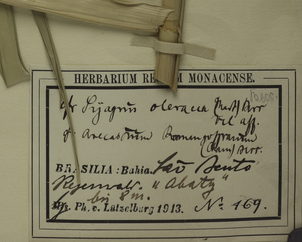 HERBARIUM REGIUM MONACENSE.
cfr Syagrus oleracea (Mart) Becc
vel aff.
cfr Arecastrum Romanzoffianum
(Cham) Becc.
BRASILIA: Bahia. São Bento
"Abaty"
bis 8 m.
Dr. Ph. v. Lützelburg 1913. No. 169.